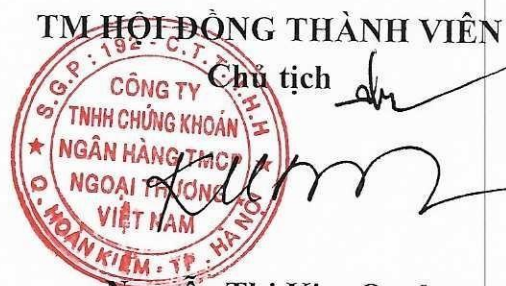 TM HỘI ĐỒNG THÀNH VIÊN
Chủ tịch
S.G.P: 192 - C.T.T.N.H.H
CÔNG TY
TNHH CHỨNG KHOÁN
NGÂN HÀNG TMCP
NGOẠI THƯƠNG
VIỆT NAM
Q. HOÀN KIẾM - TP. HÀ NỘI
Nguyễn Thị Kim